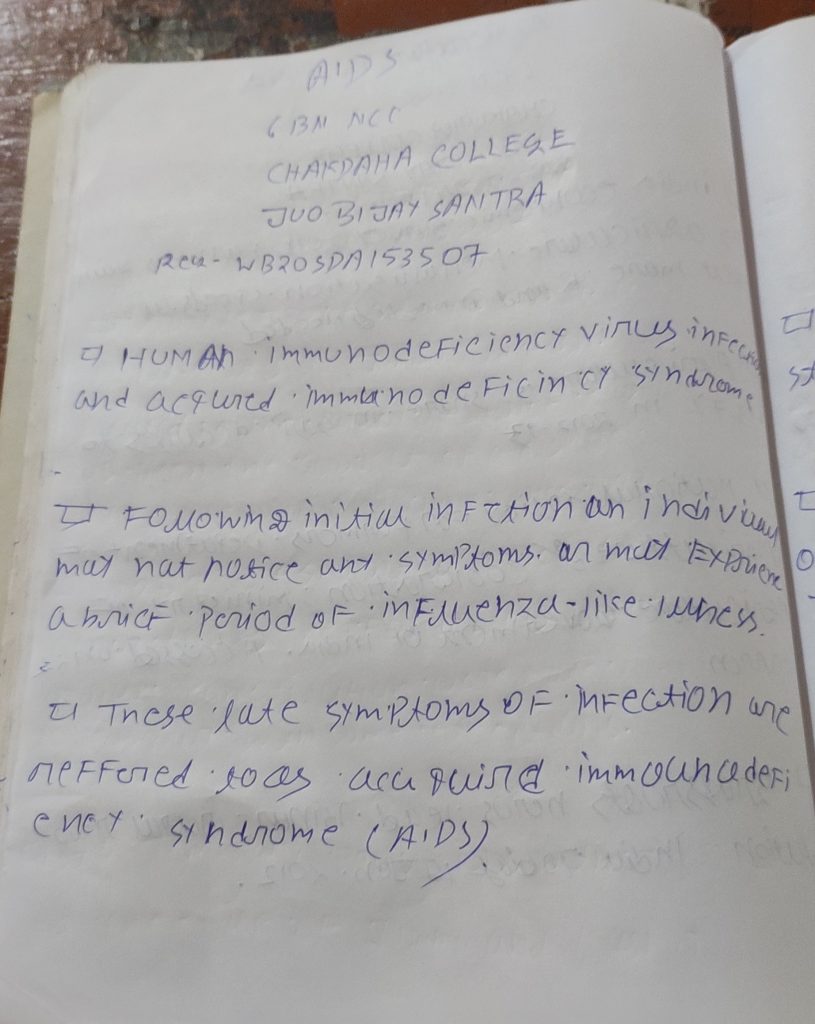 AIDS
6 BN NCC
CHAKDAHA COLLEGE
JUO BIJAY SANTRA
REG - WB20SDA153507
HUMAN immunodeficiency virus infection
and acqured immunodeficincy syndrome
Following initial infection an individual
may not notice any symptoms. or may Exprience
a brief period of influenza-like illness.
These late symptoms of infection are
reffered to as acquired immounadefi
ency syndrome (AIDS)